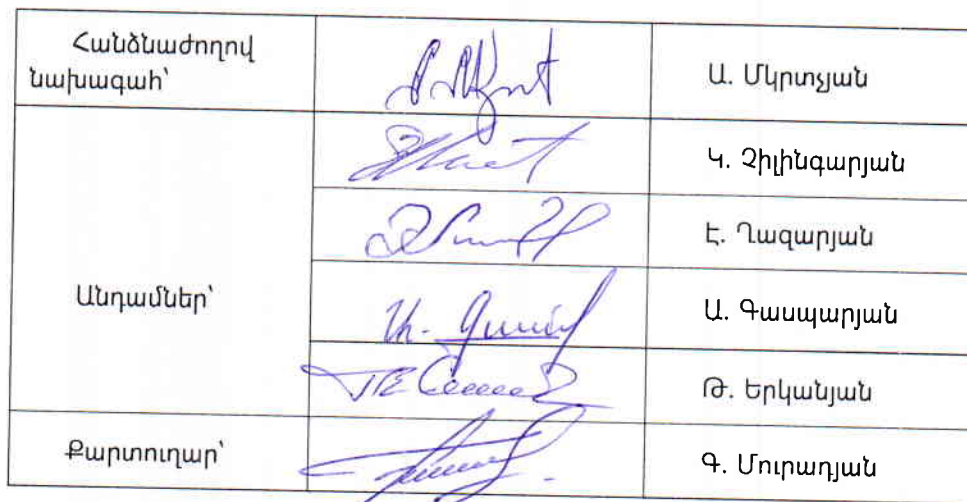 Հանձնաժողով
նախագահ՝
Ա. Մկրտչյան
Անդամներ՝
Կ. Չիլինգարյան
Է. Ղազարյան
Ա. Գասպարյան
Թ. Երկանյան
Քարտուղար՝
Գ. Մուրադյան